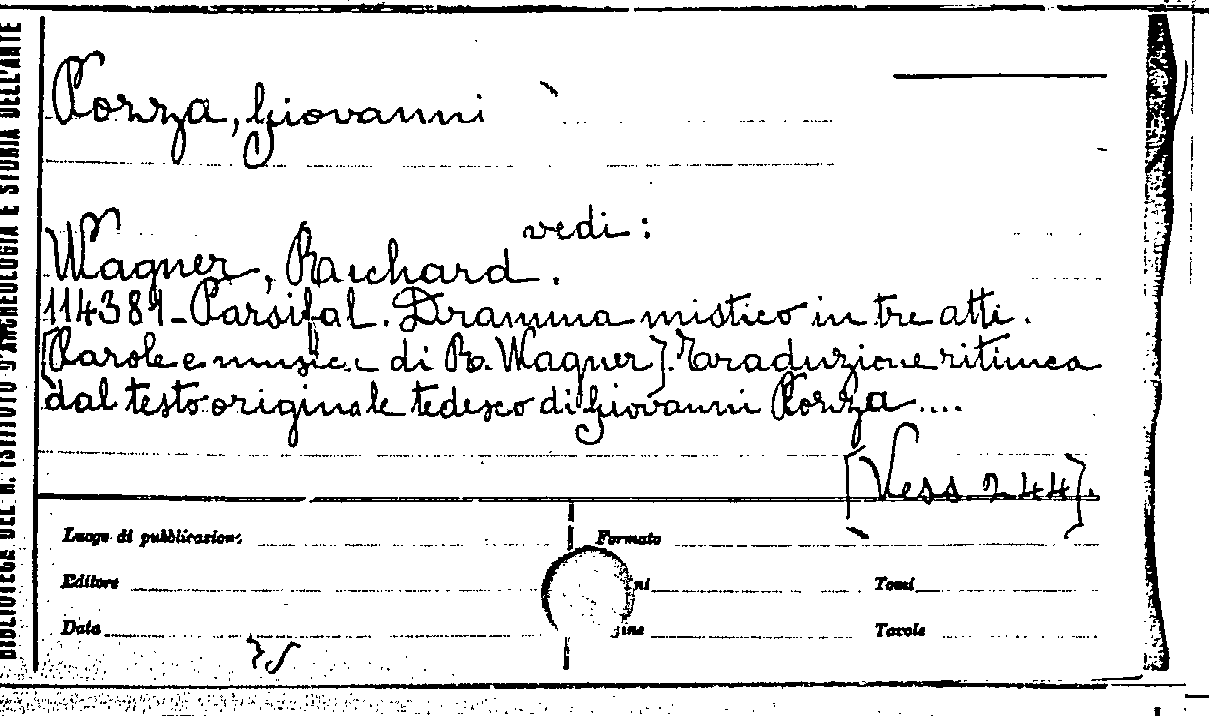 BIBLIOTECA DEL R. ISTITUTO D'ARCHEOLOGIA E STORIA DELL'ARTE
Pozza, Giovanni
vedi:
Wagner, Richard.
114381-Parsifal. Dramma mistico in tre atti.
[Parole e musica di R. Wagner]. Traduzione ritimca
dal testo originale tedesco di Giovanni Pozza....
[Vess. 244].
Luogo di pubblicazione
Formato
Editore
Tomi
Data
Tavole